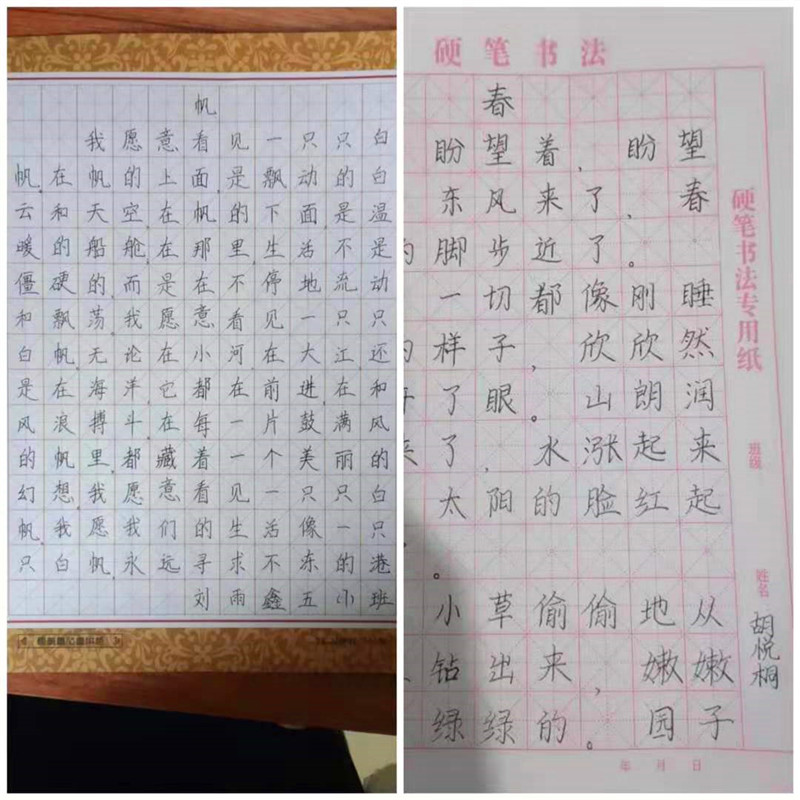 帆
我愿意看见一只只白
帆,在帆的上面,是飘动的白
云和天空,在帆的下面,是温
暖的船舱,在那里,生活不是
僵硬的,而是在不停地流动
和飘荡,我愿意看见一只只
白帆,无论在小河,在大江,还
是在海洋,它都在前进,在和
风浪搏斗,在每一片鼓满风
的帆里,都藏着一个美丽的
幻想,我愿意看见一只只白
帆,我愿我们的生活像一只
只白帆,永远寻求不冻的港
刘雨鑫五小班
硬笔书法
春
盼望着,盼望
东风来了,春
的脚步近了。
一切都像刚睡
的样子,欣欣然
开了眼。山朗润
来了,水涨起来
太阳的脸红起
。
小草偷偷地从
钻出来,嫩嫩
绿绿的。园子
硬笔书法专用纸
班级
姓名
胡悦桐
年月日